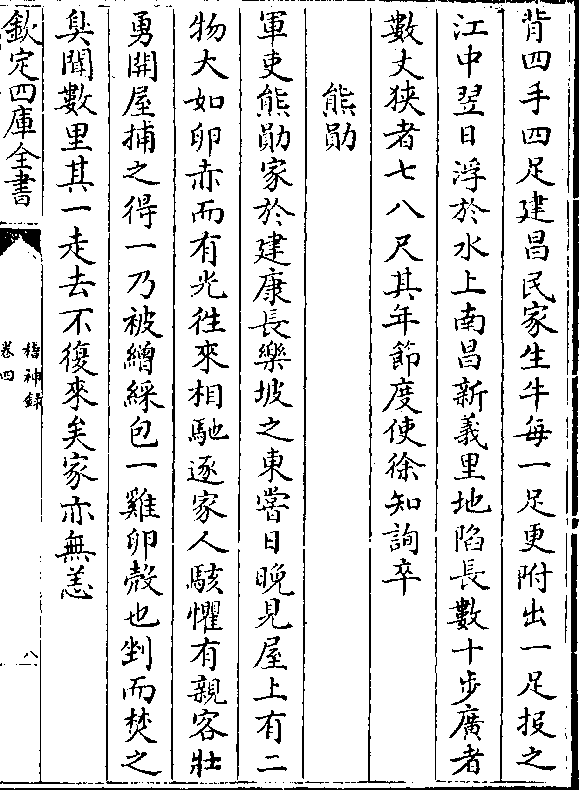 背四手四足建昌民家生牛每一足更附出一足投之
江中翌日浮於水上南昌新義里地陷長數十步廣者
數丈狹者七八尺其年節度使徐知詢卒
熊勛
軍吏熊勛家於建康長樂坡之東嘗日晚見屋上有二
物大如卵赤而有光徃來相馳逐家人駭懼有親客壯
勇開屋捕之得一乃被繒綵包一雞卵殼也剉而焚之
臭聞數里其一走去不復來矣家亦無恙
欽定四庫全書
稽神録
卷四
八